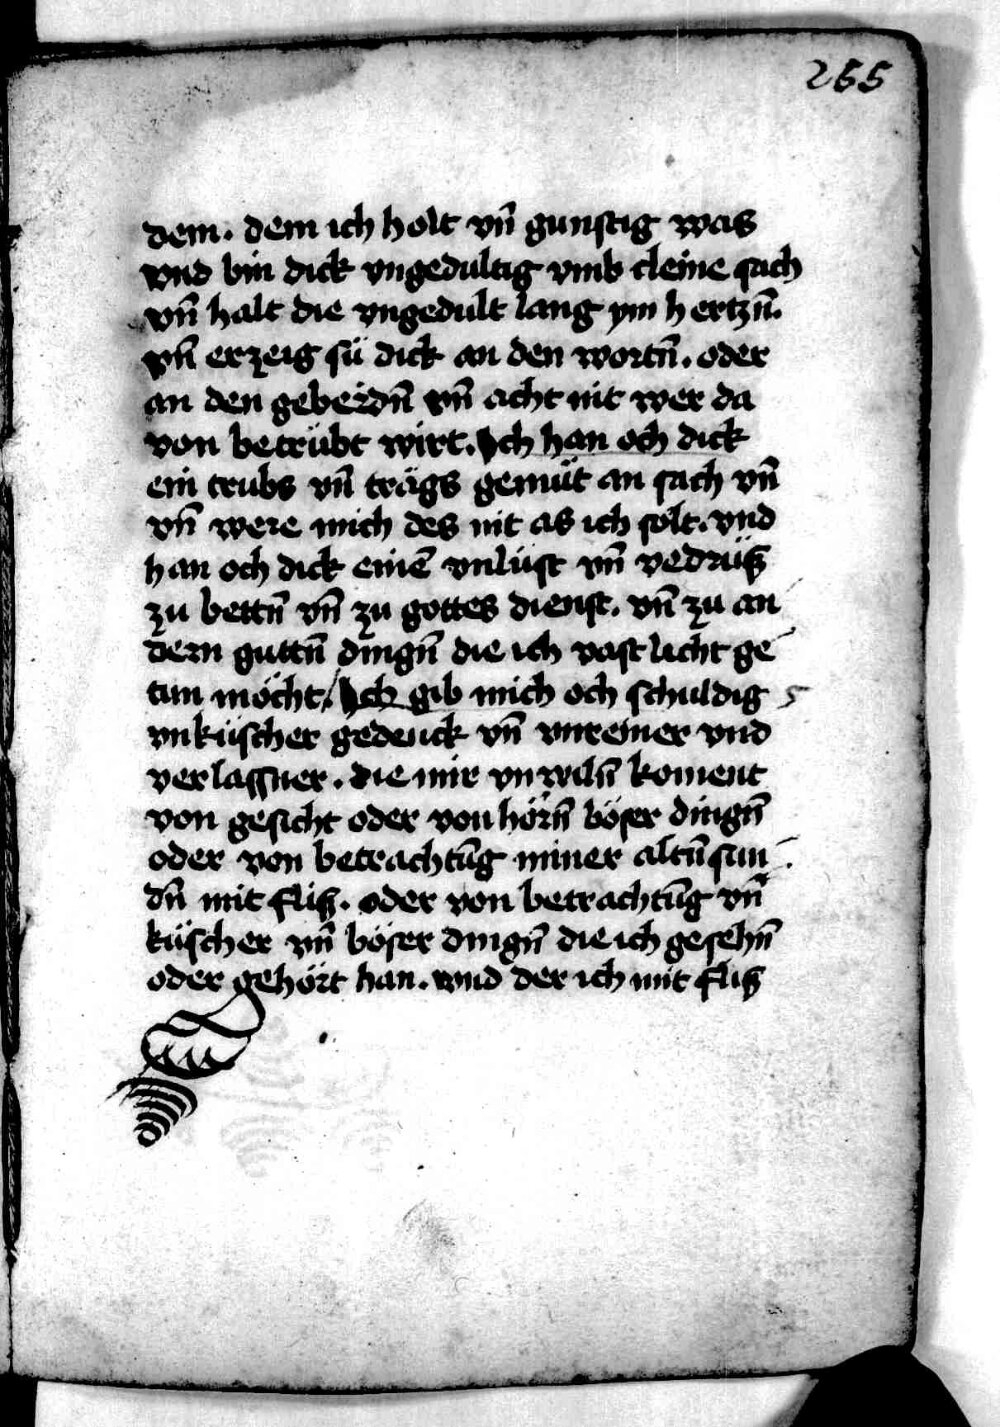 265
dem. dem ich holt vn̄ gunstig was
vnd bin dick vngedultig vmb cleine sach
vn̄ halt die vngedult lang ym hertzn̄.
vn̄ erzeig sü dick an den wortn̄. oder
an den geberdn̄ vn̄ acht nit wer da
von betrübt wirt. Ich han och dick
ein trubs vn̄ trägs gemüt an sach vn̄
vn̄ were mich des nit as ich solt. vnd
han och dick einē vnlüst vn̄ vedrüß
zu bettn̄ vn̄ zu gottes dienst. vn̄ zu an
dern guttn̄ dingn̄ die ich vast licht ge
tun möcht. Ich gib mich och schuldig
vnküscher gedenck vn̄ vnreiner vnd
verlassner. die mir vnwiln̄ koment
von gesicht oder von hörn̄ böser dingn̄
oder von betrachtūg miner altn̄ sun
dn̄ mit fliß. oder von betrachtūg vn̄
küscher vn̄ böser dingn̄ die ich gesehn̄
oder gehört han. vnd der ich mit fliß